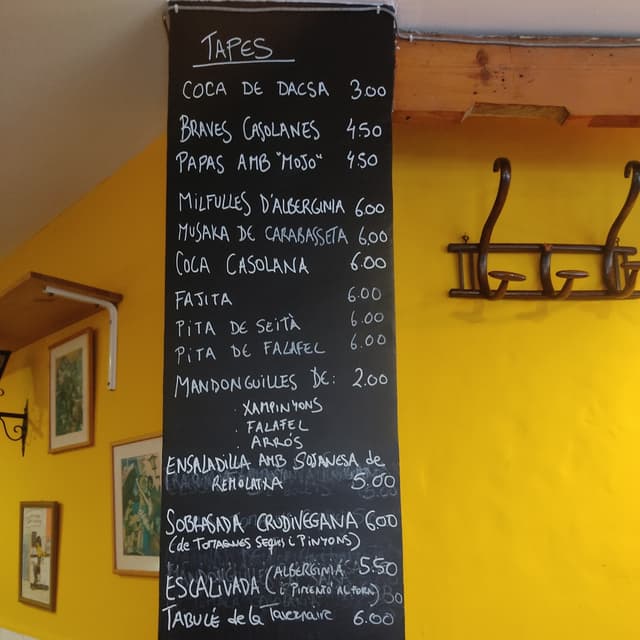 TAPES
COCA DE DACSA 3.00
BRAVES CASOLANES 4.50
PAPAS AMB "MOJO" 4.50
MILFULLES D'ALBERGINIA 6.00
MUSAKA DE CARABASSETA 6.00
COCA CASOLANA 6.00
FAJITA 6.00
PITA DE SEITÀ 6.00
PITA DE FALAFEL 6.00
MANDONGUILLES DE: 2.00
. XAMPINYONS
. FALAFEL
. ARRÓS
ENSALADILLA AMB SOJANESA de
REMOLATXA 5.00
SOBRASADA CRUDIVEGANA 6.00
(de TOMAQUES SEQUES i PINYONS)
ESCALIVADA (ALBERGINIA 5.50
i PIMENTÓ AL FORN)
TABULÉ de la Tavernaire 6.00